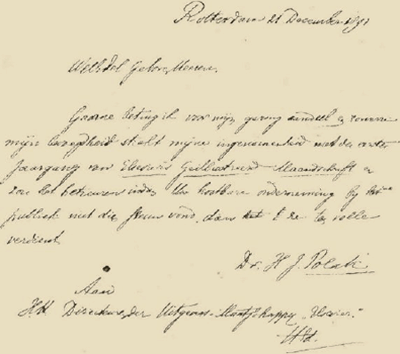 Rotterdam 21 December 1891
WelEdel Geboren Heeren,
Gaarne betuig ik voor mijn gering aandeel
mijn ingenomenheid met de eerste
jaargang van Elsevier's Geïllustreerd Maandschrift
zou het betreuren indien Uw kostbare onderneming bij het
publiek niet die steun vond, dan het ten volle
verdient.
Dr. H. J. Polak
Aan
HH Directeuren der Uitgevers-Maatschappij "Elsevier"